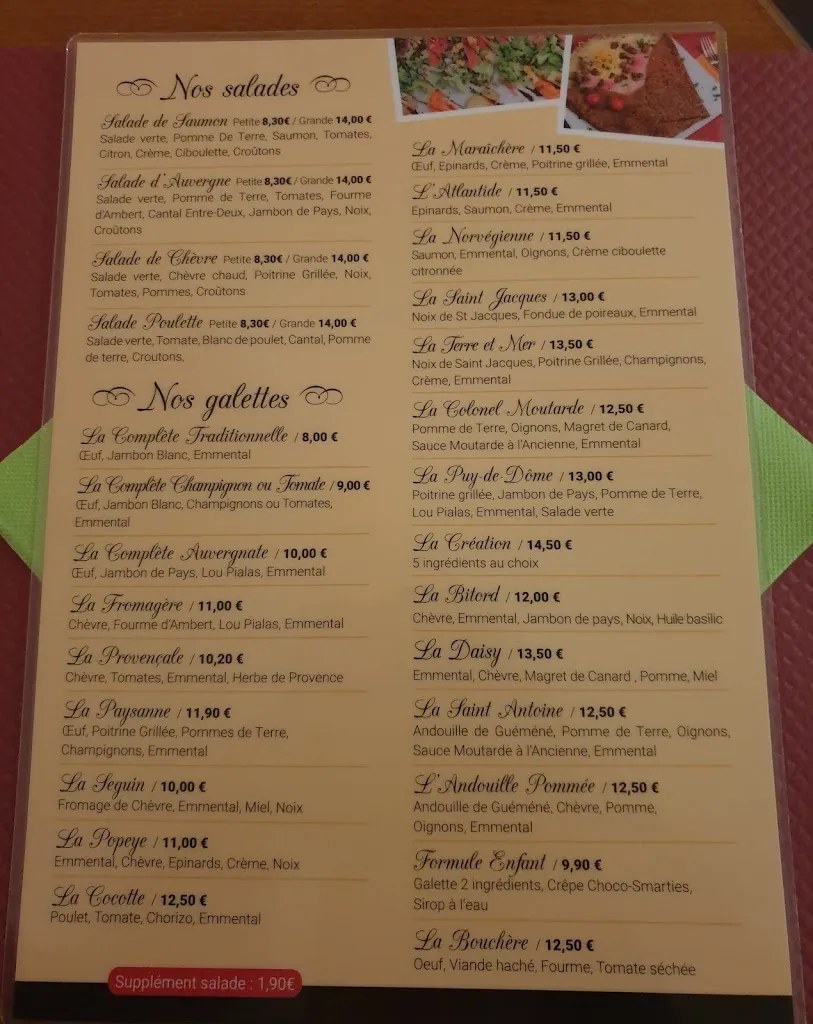 Nos salades
Salade de Saumon Petite 8,30€ / Grande 14,00 €
Salade verte, Pomme De Terre, Saumon, Tomates,
Citron, Crème, Ciboulette, Croûtons
Salade d'Auvergne Petite 8,30€ / Grande 14,00 €
Salade verte, Pomme de Terre, Tomates, Fourme
d'Ambert, Cantal Entre-Deux, Jambon de Pays, Noix,
Croûtons
Salade de Chèvre Petite 8,30€ / Grande 14,00 €
Salade verte, Chèvre chaud, Poitrine Grillée, Noix,
Tomates, Pommes, Croûtons
Salade Poulette Petite 8,30€ / Grande 14,00 €
Salade verte, Tomate, Blanc de poulet, Cantal, Pomme
de terre, Croutons,
Nos galettes
La Complète Traditionnelle / 8,00 €
Œuf, Jambon Blanc, Emmental
La Complète Champignon ou Tomate / 9,00 €
Œuf, Jambon Blanc, Champignons ou Tomates,
Emmental
La Complète Auvergnate / 10,00 €
Œuf, Jambon de Pays, Lou Pialas, Emmental
La Fromagère / 11,00 €
Chèvre, Fourme d'Ambert, Lou Pialas, Emmental
La Provençale / 10,20 €
Chèvre, Tomates, Emmental, Herbe de Provence
La Paysanne / 11,90 €
Œuf, Poitrine Grillée, Pommes de Terre,
Champignons, Emmental
La Seguin / 10,00 €
Fromage de Chèvre, Emmental, Miel, Noix
La Popeye / 11,00 €
Emmental, Chèvre, Epinards, Crème, Noix
La Cocotte / 12,50 €
Poulet, Tomate, Chorizo, Emmental
Supplément salade : 1,90€
La Maraîchère / 11,50 €
Œuf, Epinards, Crème, Poitrine grillée, Emmental
L'Atlantide / 11,50 €
Epinards, Saumon, Crème, Emmental
La Norvégienne / 11,50 €
Saumon, Emmental, Oignons, Crème ciboulette
citronnée
La Saint Jacques / 13,00 €
Noix de St Jacques, Fondue de poireaux, Emmental
La Terre et Mer / 13,50 €
Noix de Saint Jacques, Poitrine Grillée, Champignons,
Crème, Emmental
La Colonel Moutarde / 12,50 €
Pomme de Terre, Oignons, Magret de Canard,
Sauce Moutarde à l'Ancienne, Emmental
La Puy-de-Dôme / 13,00 €
Poitrine grillée, Jambon de Pays, Pomme de Terre,
Lou Pialas, Emmental, Salade verte
La Création / 14,50 €
5 ingrédients au choix
La Bitord / 12,00 €
Chèvre, Emmental, Jambon de pays, Noix, Huile basilic
La Daisy / 13,50 €
Emmental, Chèvre, Magret de Canard , Pomme, Miel
La Saint Antoine / 12,50 €
Andouille de Guéméné, Pomme de Terre, Oignons,
Sauce Moutarde à l'Ancienne, Emmental
L'Andouille Pommée / 12,50 €
Andouille de Guéméné, Chèvre, Pomme,
Oignons, Emmental
Formule Enfant / 9,90 €
Galette 2 ingrédients, Crêpe Choco-Smarties,
Sirop à l'eau
La Bouchère / 12,50 €
Oeuf, Viande haché, Fourme, Tomate séchée